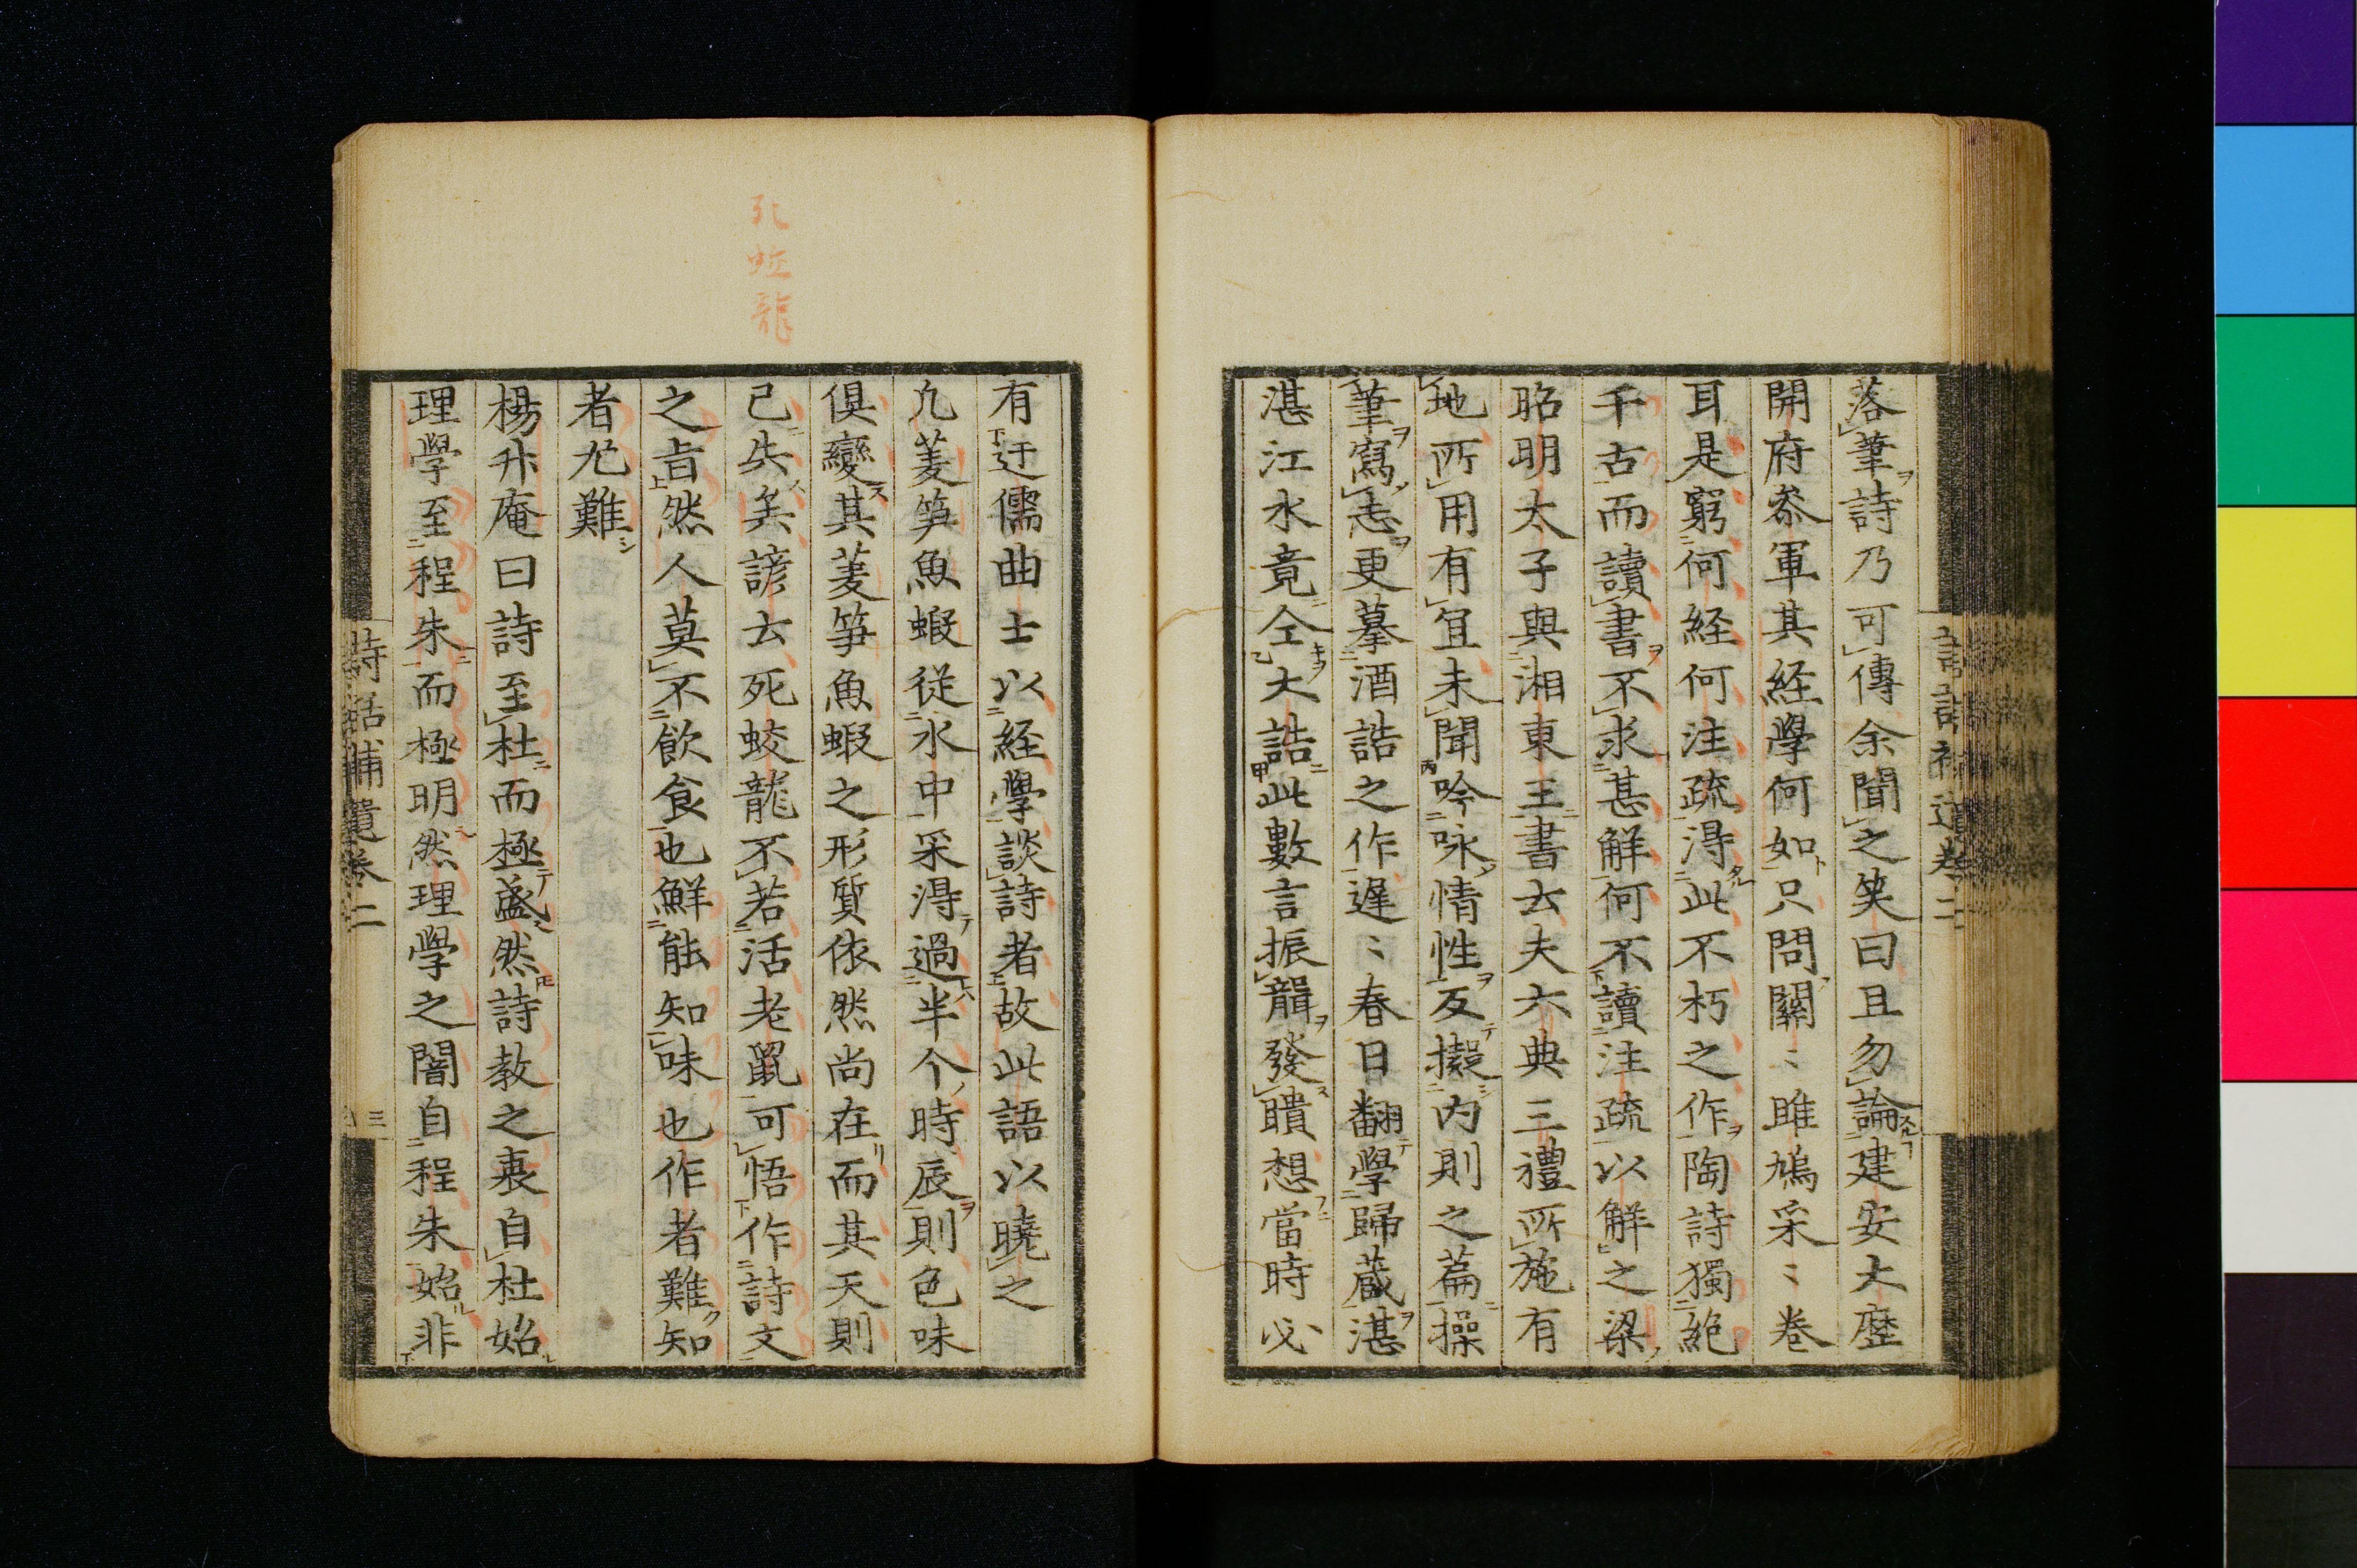 落筆詩乃可傳余聞之笑曰且勿論建安大歴
開府參軍其経學何如只問關〻雎鳩采〻卷
耳是窮何経何注疏得此不朽之作陶詩獨絶
千古而讀書不求甚解何不讀注疏以解之梁
昭明太子與湘東王書云夫六典三禮所施有
地所用有宜未聞吟咏情性反擬内則之篇操
筆寫志更摹酒誥之作遅〻春日翻學歸蔵湛
湛江水竟仝大誥此數言振聾發聵想當時必
有迂儒曲士以経學談詩者故此語以曉之
凢蔆笋魚蝦從水中采得過半个時辰則色味
俱變其蔆笋魚蝦之形質依然尚在而其天則
已失矣諺云死蛟龍不若活老鼠可悟作詩文
之旨然人莫不飲食也鮮能知味也作者難知
者尤難
楊升庵曰詩至杜而極盛然詩教之衰自杜始
理學至程朱而極明然理學之闇自程朱始非
詩話補遺卷二